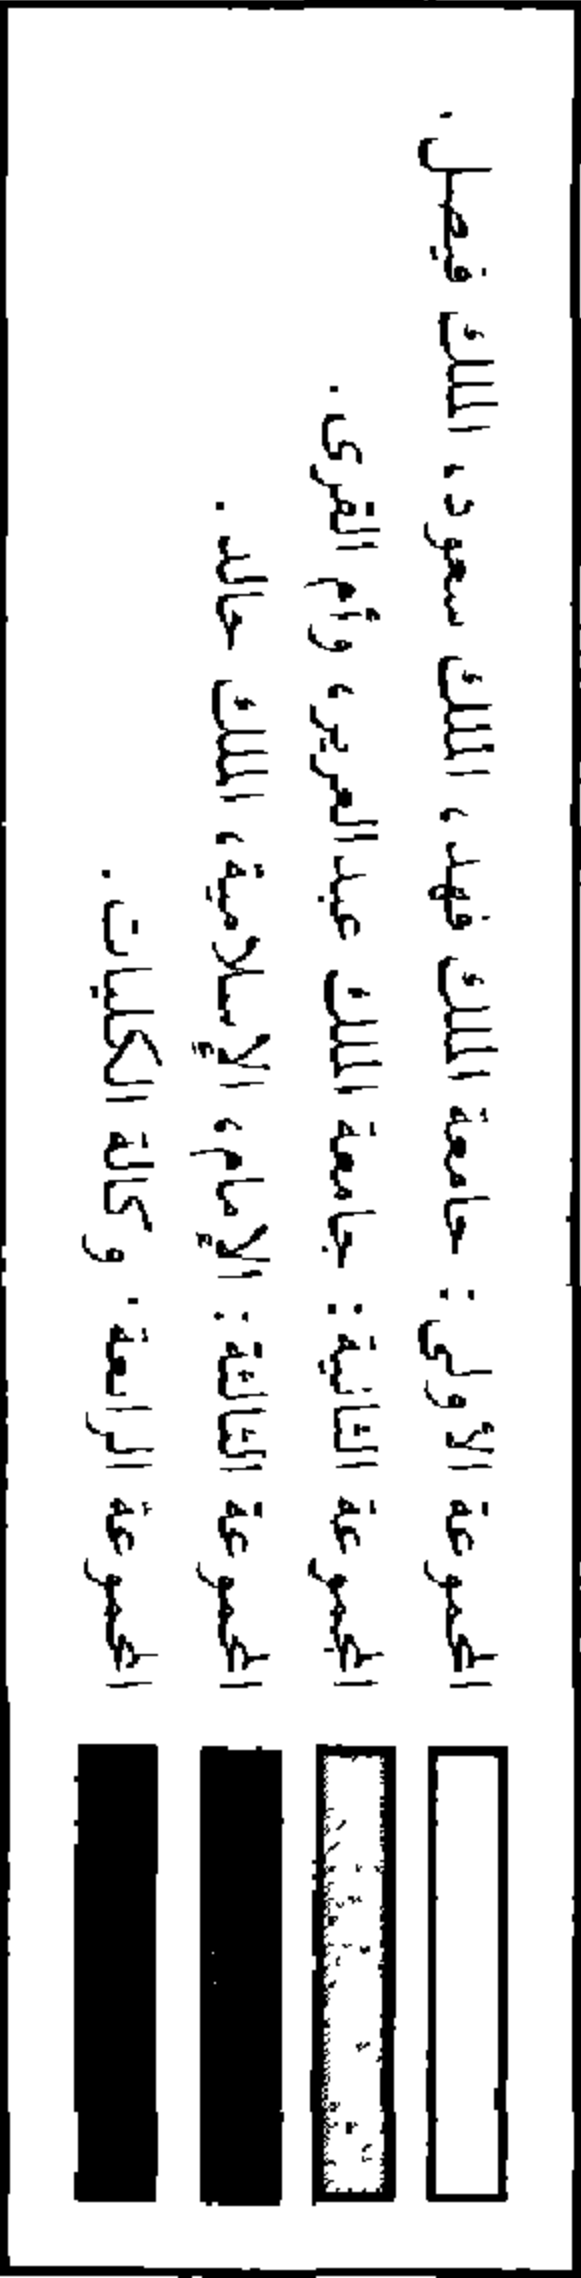 المجموعة الأولى : جامعة الملك فهد، الملك سعود، الملك فيصل.
المجموعة الثانية : جامعة الملك عبدالعزيز، وأم القرى.
المجموعة الثالثة : الإمام، الإسلامية، الملك خالد.
المجموعة الرابعة : وكالة الكليات.